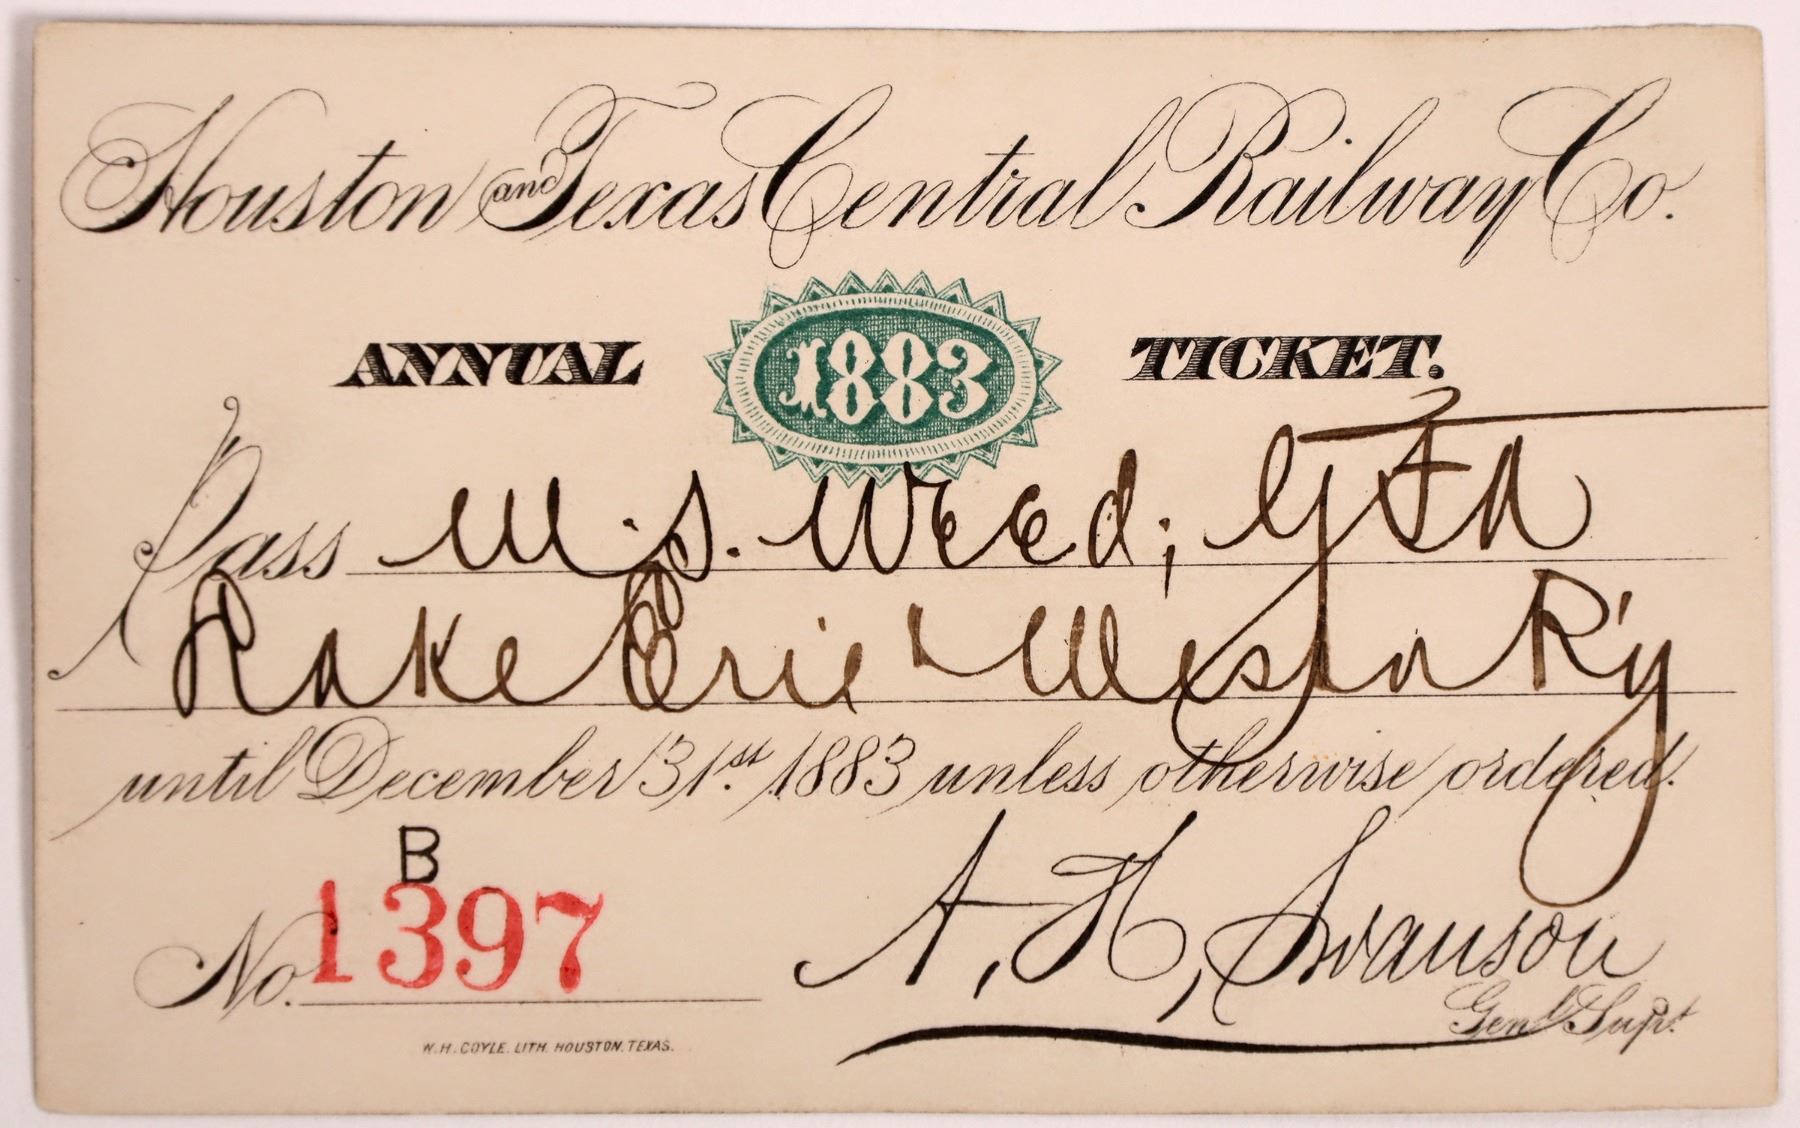 Houston and Texas Central Railway Co.
ANNUAL 1883 TICKET.
Pass M. S. Weed; GFA
Lake Erie & Western R'y
until December 31st. 1883 unless otherwise ordered.
B
No. 1397
A, H, Swanson
Genl Supt.
W. H. COYLE. LITH. HOUSTON, TEXAS.